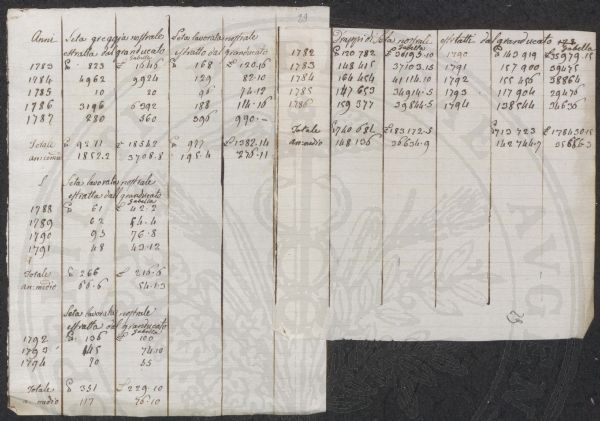 23
Anni Seta greggia nostrale Seta lavorata nostrale
estratta dal granducato estratto dal granducato
Gabella
1783 £ 823 £ 1646 £ 168 £ 120.16
1784 4962 9924 129 82.10
1785 10 20 96 74.12
1786 3196 6392 188 114.16
1787 280 560 396 990.—
Totale £ 9271 £ 18542 £ 977 £ 1382.14
1852.2 3708.8 195.4 276.11
Seta lavorata nostrale
estratta dal granducato
Gabella
1788 £ 61 £ 42.2
1789 62 54.4
1790 95 76.8
1791 48 43.12
Totale £ 266 £ 216.6
an: medio 66.6 54.1.3
Seta lavorata nostrale
estratta dal granducato
Gabella
1792 £ 136 £ 100
1793 145 74.10
1794 70 55
Totale £ 351 £ 229.10
a. medio 117 76.10
Drappi di Seta nostrale estratti dal granducato
Gabella Gabella
1782 £ 120782 £ 30195.10 1790 £ 143919 £ 35979.15
1783 148415 37103.15 1791 157900 39475
1784 164454 41114.10 1792 155456 38864
1785 147653 34914.5 1793 117904 29476
1786 159377 39844.5 1794 138544 34636
Totale £ 740681 £ 183172.5 £ 713723 £ 178430.15
an: medio 148136 36634.9 142744.7 35686.3